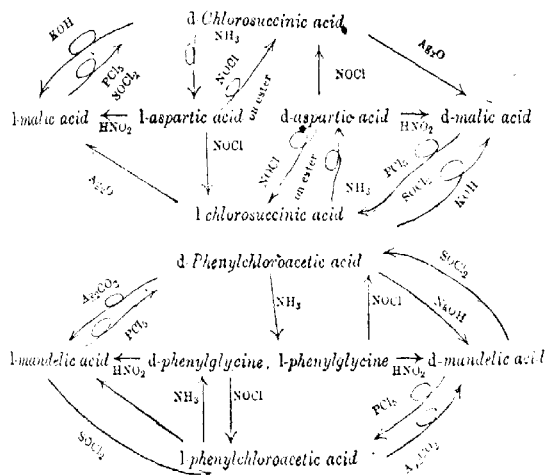 d-Chlorosuccinic acid
KOH
NH3
PCl5
SOCl2
NOCl
on ester
NOCl
Ag2O
l-malic acid HNO2 l-aspartic acid d-aspartic acid HNO2 d-malic acid
NOCl
Ag2O
NOCl
on ester
NH3
PCl5
SOCl2
KOH
l chlorosuccinic acid
d-Phenylchloroacetic acid
Ag2CO3
PCl5
NH3
NOCl
NaOH
SOCl2
l-mandelic acid HNO2 d-phenylglycine, l-phenylglycine HNO2 d-mandelic acid
SOCl2
NH3
NOCl
PCl5
Ag2CO3
l-phenylchloroacetic acid